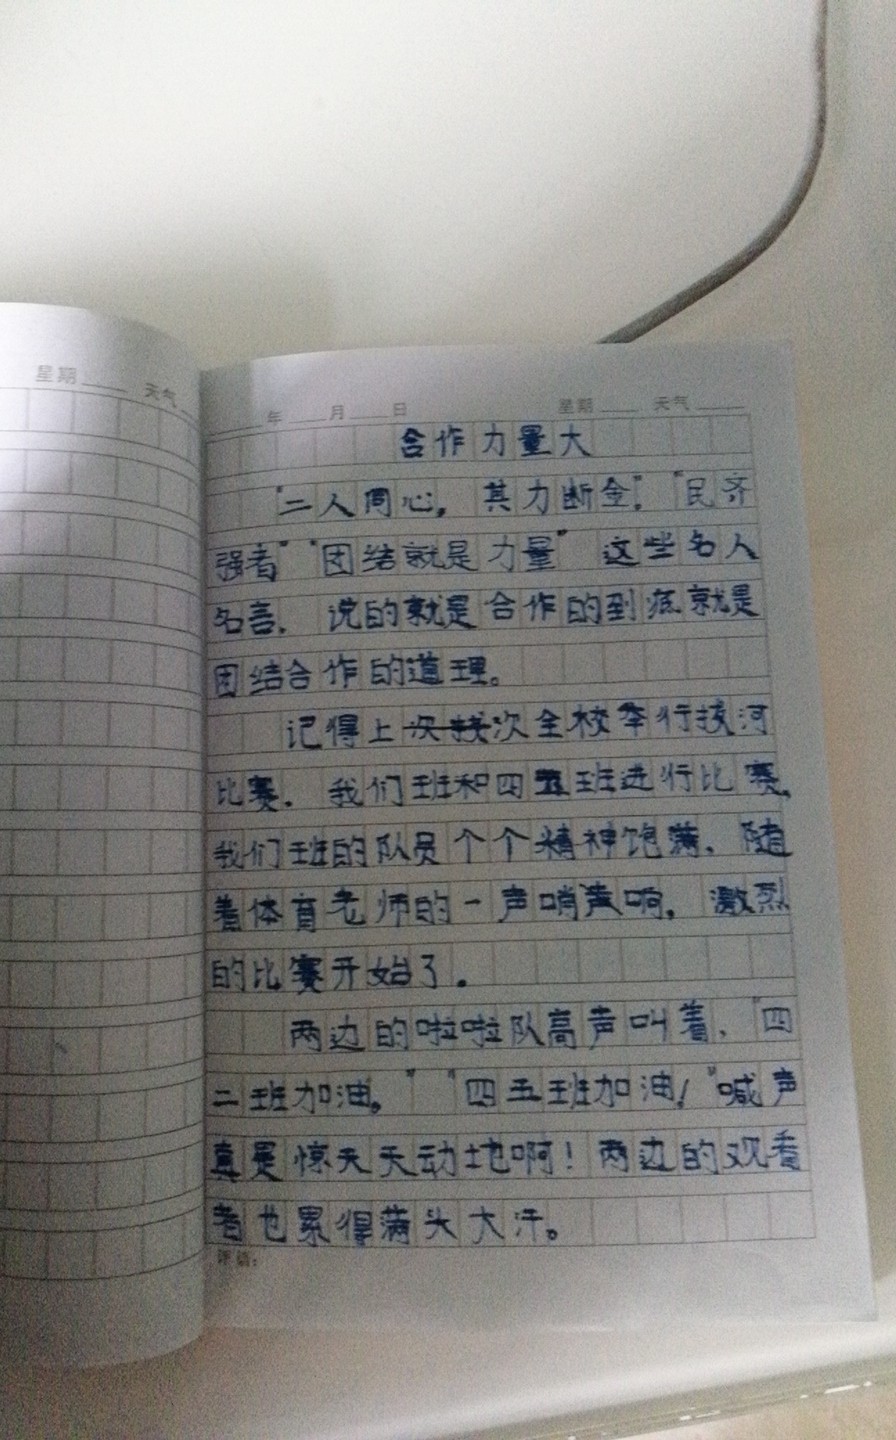 星期 天气
年 月 日 星期 天气
合作力量大
"二人同心，其力断金"。"民齐
强者""团结就是力量"这些名人
名言，说的就是合作的到底就是
团结合作的道理。
记得上次全校举行拔河
比赛，我们班和四五班进行比赛，
我们班的队员个个精神饱满，随
着体育老师的一声哨声响，激烈
的比赛开始了。
两边的啦啦队高声叫着，"四
二班加油。""四五班加油！"喊声
真是惊天天动地啊！两边的观看
者也累得满头大汗。
评语：